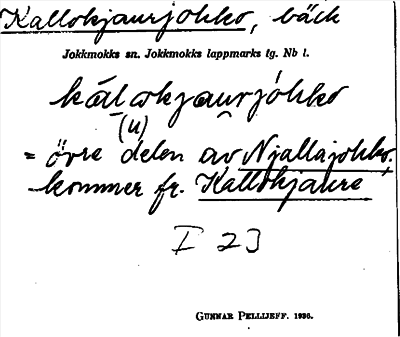 Kallokjaurjokko, bäck
Jokkmokks sn. Jokkmokks lappmarks tg. Nb l.
kálokjaurjóhko
(u)
= övre delen av Njallajokko,
kommer fr. Kallokjaure
I 23
GUNNAR PELLIJEFF. 1936.